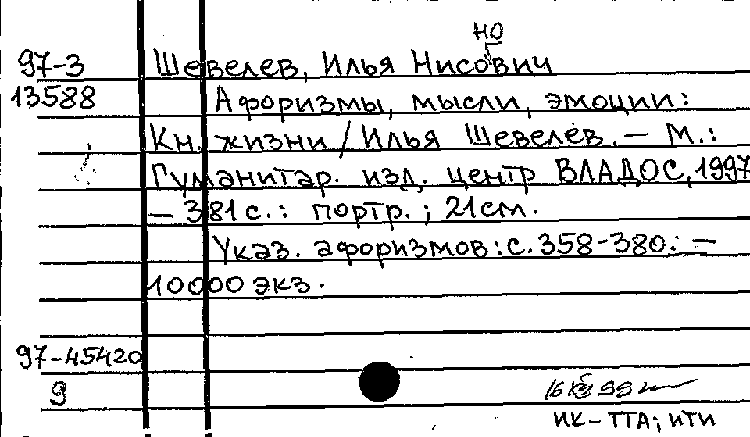 но
97-3 Шевелев, Илья Нисович
13588 Афоризмы, мысли, эмоции:
Кн. жизни / Илья Шевелев. — М.:
Гуманитар. изд. центр ВЛАДОС, 1997
— 381 с.: портр.; 21 см.
Указ. афоризмов: с. 358-380. —
10000 экз.
97-45420
9
ИК-ТТА; ИТИ